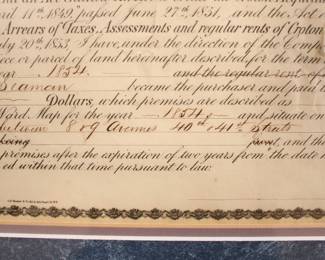 April 11th 1849, passed June 27th 1851, and the Act
Arrears of Taxes, Assessments and regular rents of Croton
July 20th 1853, I have, under the direction of the Comp
piece or parcel of land hereinafter described, for the term
year 1854 and the regular rent of
Seaman became the purchaser and paid
Dollars, which premises are described as
Ward Map for the year 1854, and situate on
between 8 & 9 Avenues 40th & 41st Streets
being and the
premises after the expiration of two years from the date
ed within that time pursuant to law.